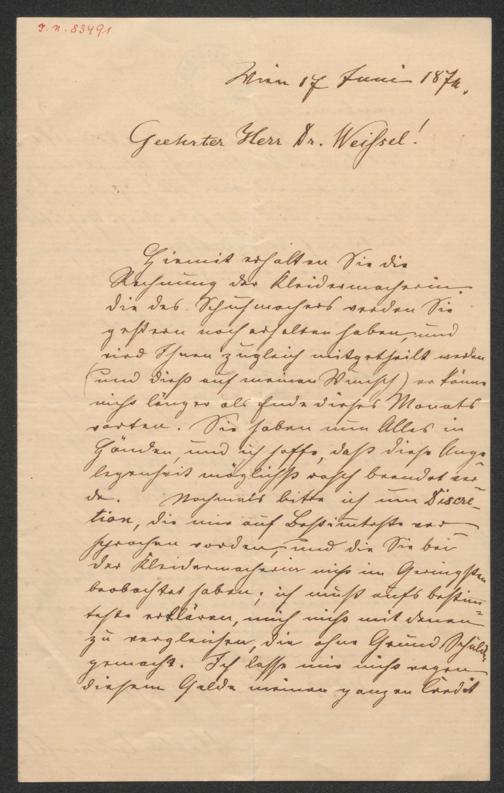 J. N. 83491
Wien 17 Juni 187
Geehrter Herr Dr. Weißel!
Hiemit erhalten Sie die
Rechnung der Kleidermacherin.
die des Schuhmachers werden Sie
gestern noch erhalten haben, und
wird Ihnen zugleich mitgetheilt werden
(und dieß auf meinen Wunsch) er könne
nicht länger als Ende dieses Monats
warten. Sie haben nun Alles in
Händen, und ich hoffe, daß diese Ange-
legenheit möglichst rasch beendet wer-
de. Nochmals bitte ich um Discre-
tion, die mir auf Bestimmteste ver-
sprochen worden, und die Sie bei
der Kleidermacherin nicht im Geringsten
beobachtet haben; ich muß aufs bestimm-
teste erklären, mich nicht mit denen
zu vergleichen, die ohne Grund Schulden
gemacht. Ich lasse mir nicht wegen
diesem Gelde meinen ganzen Credit